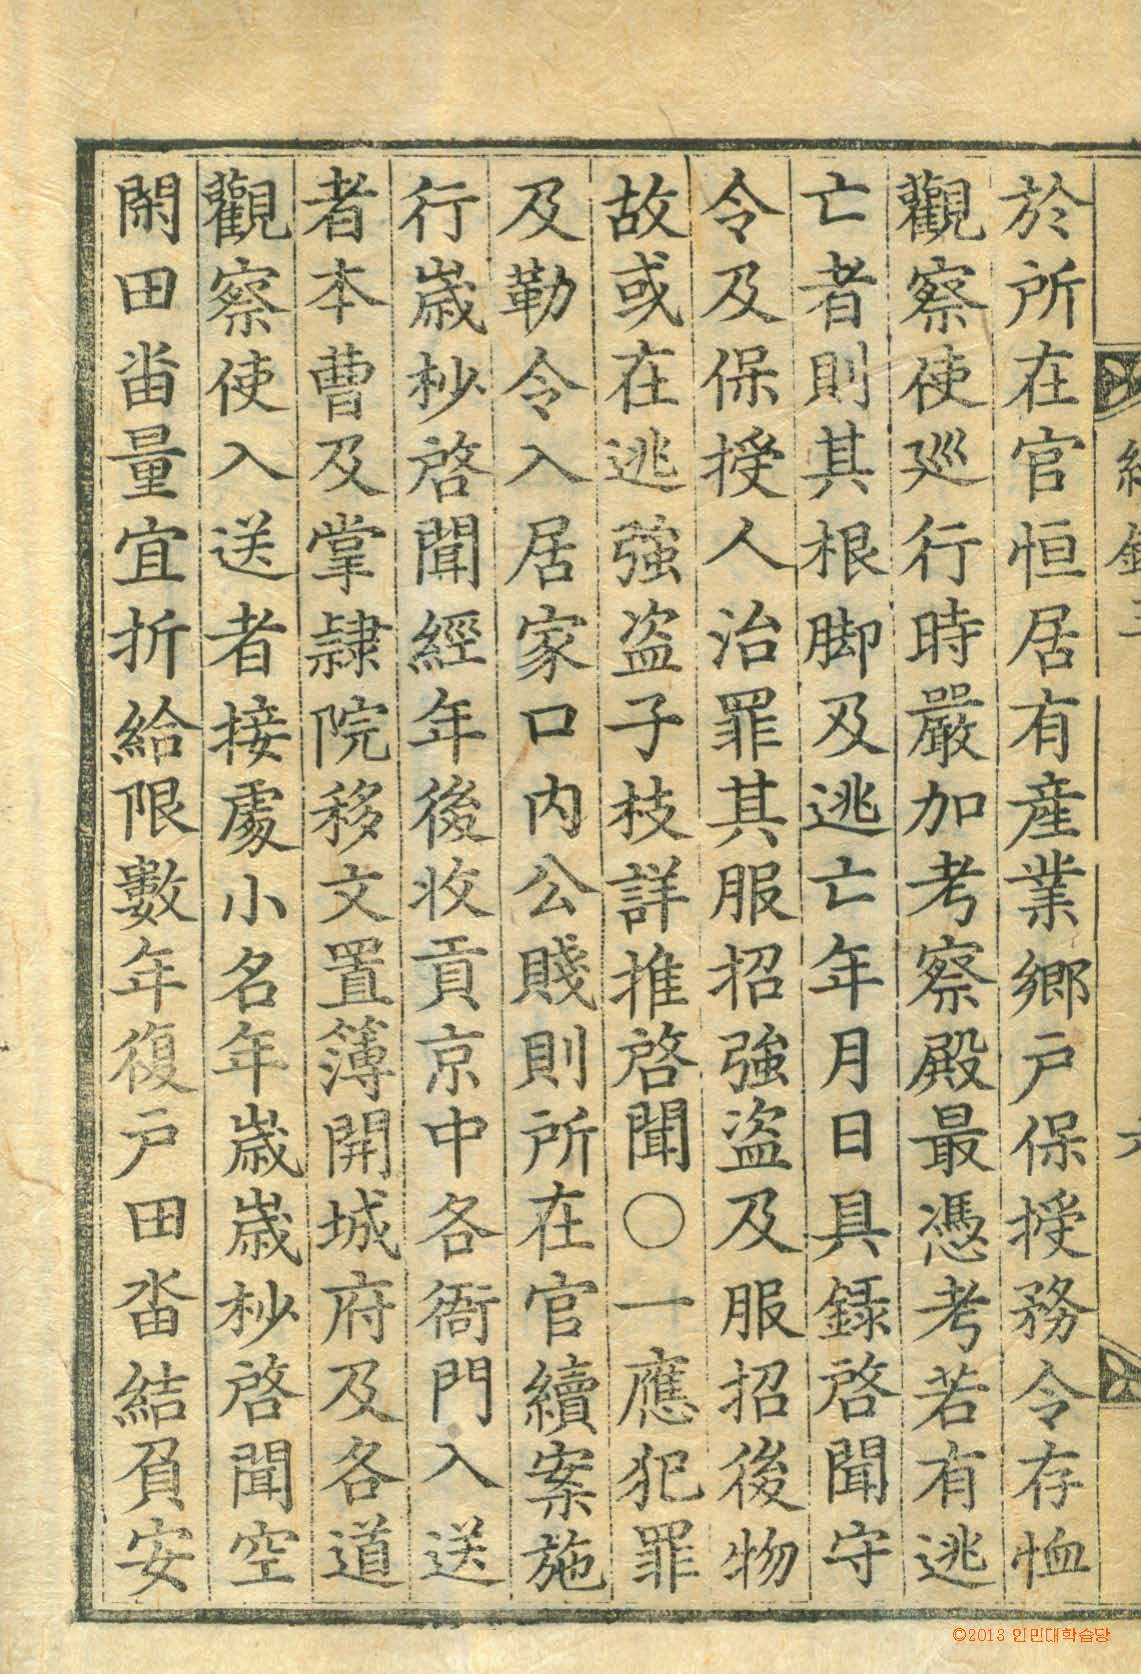 於所在官恒居有産業鄕戶保授務令存恤
觀察使廵行時嚴加考察殿最憑考若有逃
亡者則其根脚及逃亡年月日具錄啓聞守
令及保授人治罪其服招強盗及服招後物
故或在逃強盗子枝詳推啓聞○一應犯罪
及勒令入居家口内公賤則所在官續案施
行嵗杪啓聞經年後收貢京中各衙門入送
者本曹及掌隷院移文置簿開城府及各道
觀察使入送者接處小名年嵗嵗杪啓聞空
閑田畓量宜折給限數年復戶田畓結負安
©2013 인민대학습당